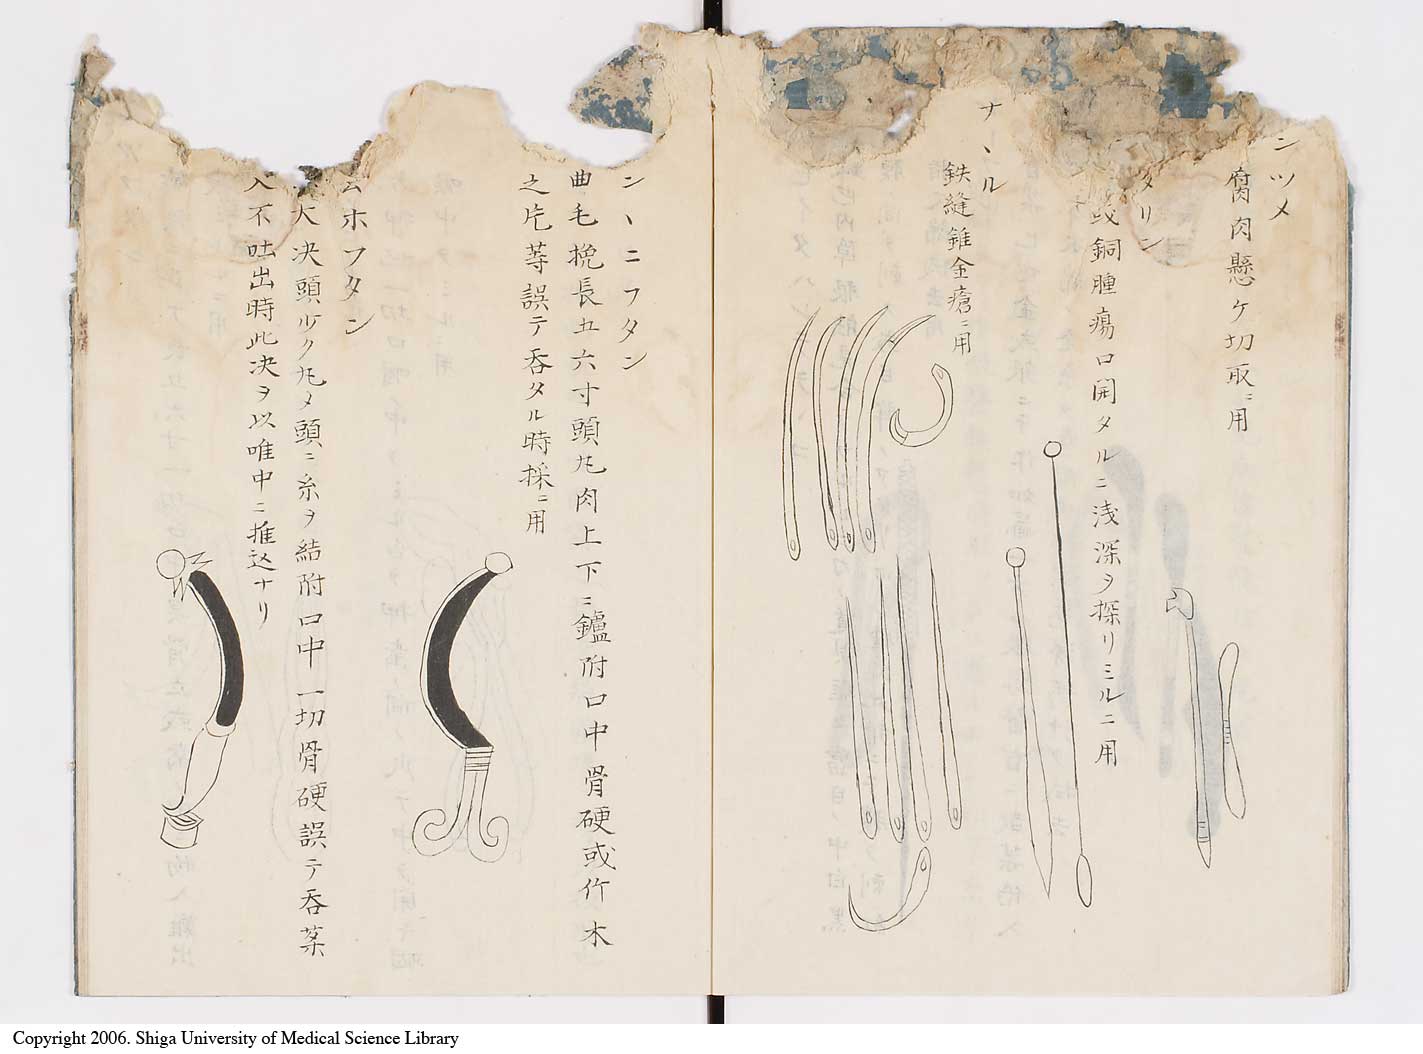 ンツメ
腐肉懸ケ切取ニ用
タリン
或銅腫瘍口開タルニ浅深ヲ探リミルニ用
ナヽル
鉄縫錐金瘡ニ用
ンヽニフタン
曲毛挽長五六寸頭丸肉上下ニ鑪附口中骨硬或竹木
之片等誤テ呑タル時採ニ用
ムホフタン
大决頭少ク丸メ頭ニ糸ヲ結附口中一切骨硬誤テ呑葉
入不吐出時此决ヲ以喉中ニ推込ナリ
Copyright 2006. Shiga University of Medical Science Library